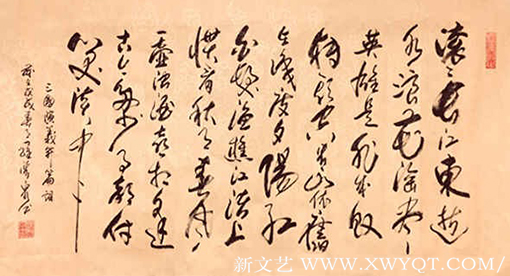 滚滚長江東逝
水浪花淘尽
英雄是非成败
转头空青山依舊
在几度夕陽红
白发渔樵江渚上
惯看秋月春风
一壶浊酒喜相逢
古今多少事都付
笑谈中
三国演義开篇词
新文艺 WWW.XWYQT.COM